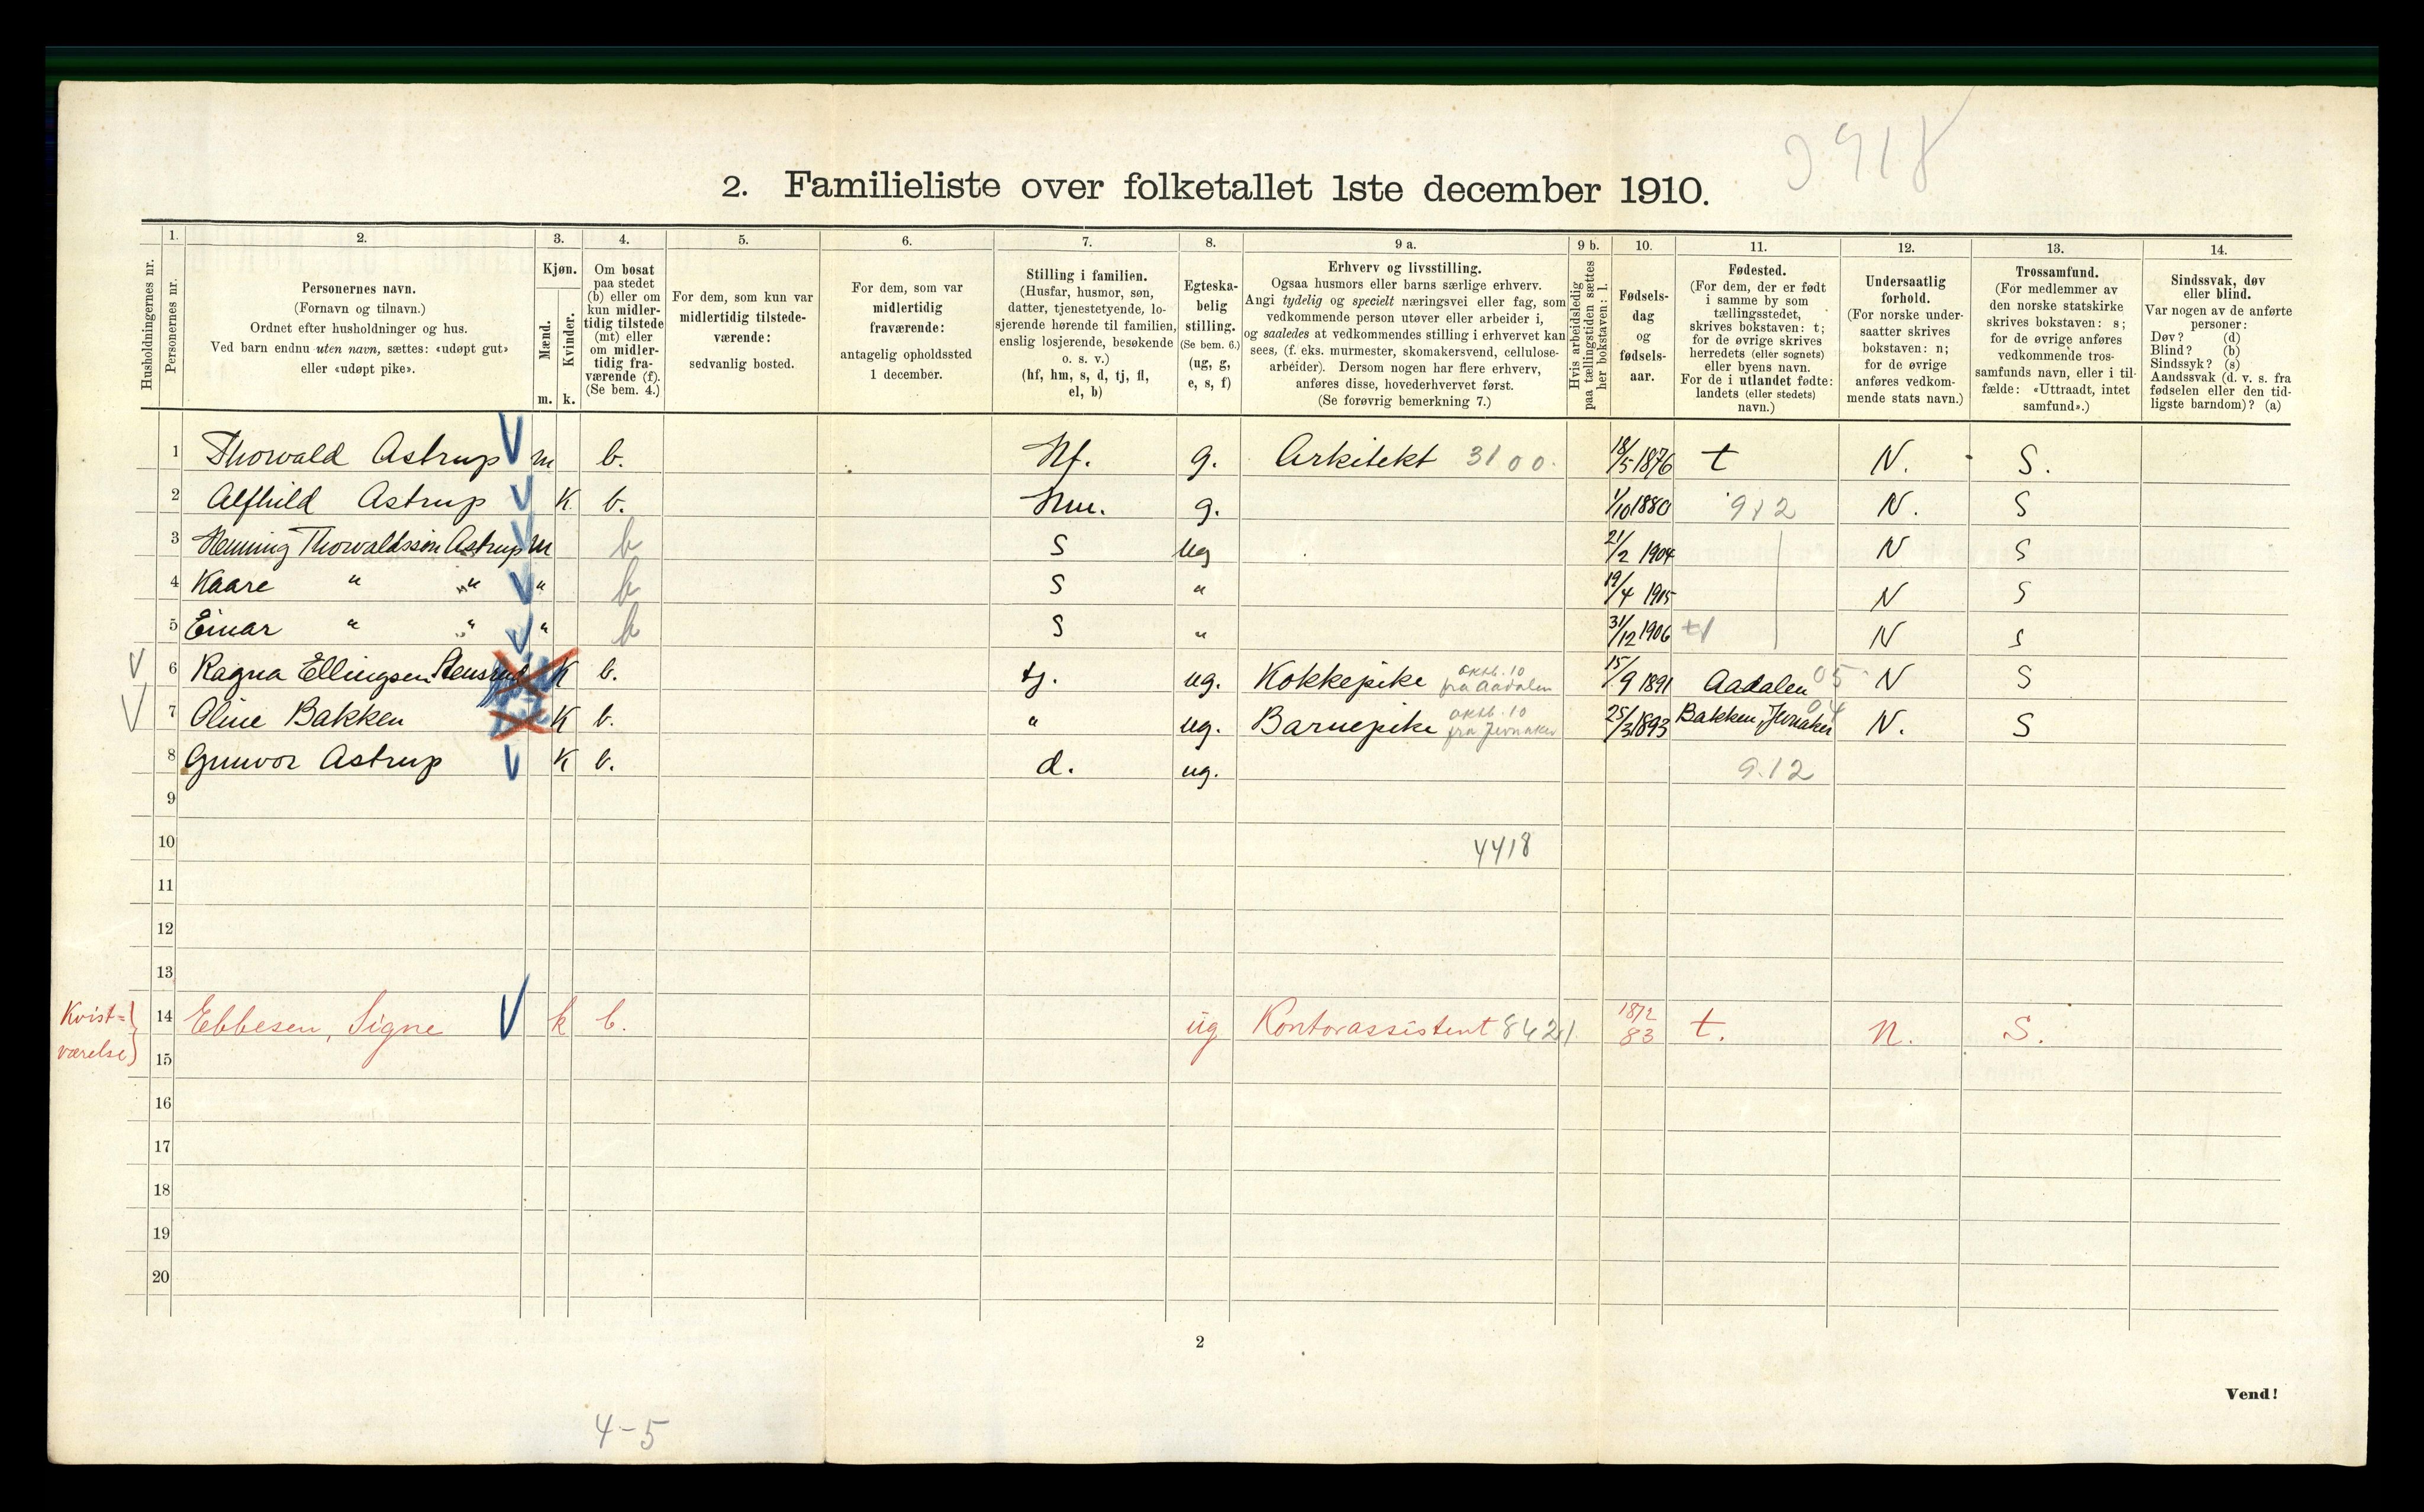 3918
2. Familieliste over folketallet 1ste december 1910.
1. 2. 3. 4. 5. 6. 7. 8. 9 a. 9 b. 10. 11. 12. 13. 14.
Husholdningernes nr.
Personernes nr.
Personernes navn.
(Fornavn og tilnavn.)
Ordnet efter husholdninger og hus.
Ved barn endnu uten navn, sættes: «udøpt gut»
eller «udøpt pike».
Kjøn.
Mænd.
Kvinder.
m. k.
Om bosat
paa stedet
(b) eller om
kun midler-
tidig tilstede
(mt) eller
om midler-
tidig fra-
værende (f).
(Se bem. 4.)
For dem, som kun var
midlertidig tilstede-
værende:
sedvanlig bosted.
For dem, som var
midlertidig
fraværende:
antagelig opholdssted
1 december.
Stilling i familien.
(Husfar, husmor, søn,
datter, tjenestetyende, lo-
sjerende hørende til familien,
enslig losjerende, besøkende
o. s. v.)
(hf, hm, s, d, tj, fl,
el, b)
Egteska-
belig
stilling.
(Se bem. 6.)
(ug, g,
e, s, f)
Erhverv og livsstilling.
Ogsaa husmors eller barns særlige erhverv.
Angi tydelig og specielt næringsvei eller fag, som
vedkommende person utøver eller arbeider i,
og saaledes at vedkommendes stilling i erhvervet kan
sees, (f. eks. murmester, skomakersvend, cellulose-
arbeider). Dersom nogen har flere erhverv,
anføres disse, hovederhvervet først.
(Se forøvrig bemerkning 7.)
Hvis arbeidsledig
paa tællingstiden sættes
her bokstaven: l.
Fødsels-
dag
og
fødsels-
aar.
Fødested.
(For dem, der er født
i samme by som
tællingsstedet,
skrives bokstaven: t;
for de øvrige skrives
herredets (eller sognets)
eller byens navn.
For de i utlandet fødte:
landets (eller stedets)
navn.)
Undersaatlig
forhold.
(For norske under-
saatter skrives
bokstaven: n;
for de øvrige
anføres vedkom-
mende stats navn.)
Trossamfund.
(For medlemmer av
den norske statskirke
skrives bokstaven: s;
for de øvrige anføres
vedkommende tros-
samfunds navn, eller i til-
fælde: «Uttraadt, intet
samfund».)
Sindssvak, døv
eller blind.
Var nogen av de anførte
personer:
Døv? (d)
Blind? (b)
Sindssyk? (s)
Aandssvak (d. v. s. fra
fødselen eller den tid-
ligste barndom)? (a)
1 Thorvald Astrup m b. Hf. g. Arkitekt 3100. 18/5 1876 t N. S.
2 Alfhild Astrup K b. Hm. g. 1/10 1880 912 N. S
3 Henning Thorvaldssøn Astrup m b S ug 21/2 1904 N S
4 Kaare " " " b S " 19/4 1905 N S
5 Einar " " " b S " 31/12 1906 t N S
6 Ragna Ellingsen Stensrud K b. tj. ug. Kokkepike oktb. 10 fra Aadalen 15/9 1891 Aadalen 05 N S
7 Oline Bakken K b. " ug. Barnepike oktb. 10 fra Jevnaker 25/3 1893 Bakken, Jevnaker 04 N. S
8 Gunvor Astrup K b. d. ug. 9.12
9
10 4418
11
12
13
Kvist=
værelse
14 Ebbesen, Signe k b. ug Kontorassistent 8421 18/2 83 t. n. S.
15
16
17
18
19
20
2
Vend!
4-5